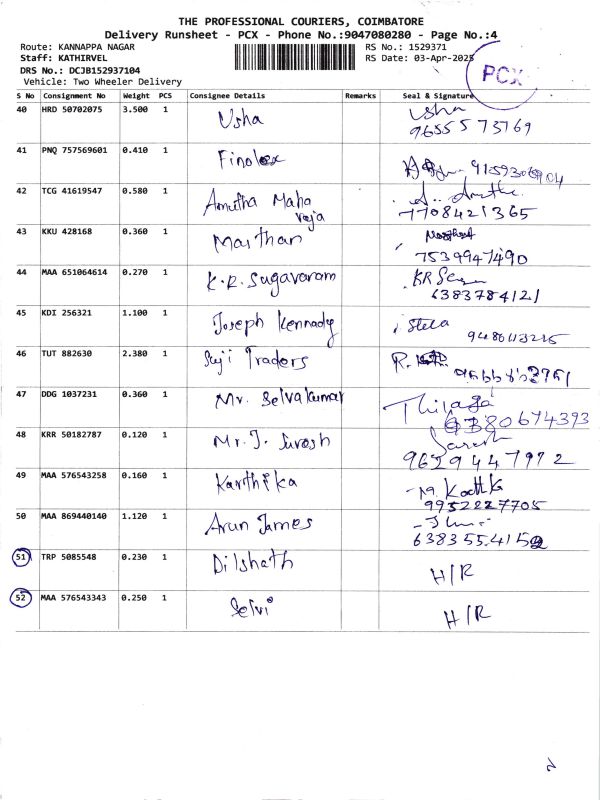 THE PROFESSIONAL COURIERS, COIMBATORE
Delivery Runsheet - PCX - Phone No.:9047080280 - Page No.:4
Route: KANNAPPA NAGAR
RS No.: 1529371
Staff: KATHIRVEL
RS Date: 03-Apr-2025
DRS No.: DCJB152937104
Vehicle: Two Wheeler Delivery
PCX
S No Consignment No Weight PCS Consignee Details Remarks Seal & Signature
40 HRD 50702075 3.500 1 Usha Usha
9655573769
41 PNQ 757569601 0.410 1 Finolex
42 TCG 41619547 0.580 1 Amutha Maha
raja
7708421365
43 KKU 428168 0.360 1 Maithan
7539947490
44 MAA 651064614 0.270 1 K.R. Sugavaram KR
6383784121
45 KDI 256321 1.100 1 Joseph Kennady Stela
46 TUT 882630 2.380 1 Suji Traders R.
47 DDG 1037231 0.360 1 Mr. Selvakumar Thilaga
80674393
48 KRR 50182787 0.120 1 Mr. J. Suresh Suresh
9629447972
49 MAA 576543258 0.160 1 Karthika M.
9952227705
50 MAA 869440140 1.120 1 Arun James
51 TRP 5085548 0.230 1 Dilshath H/R
52 MAA 576543343 0.250 1 Selvi H/R